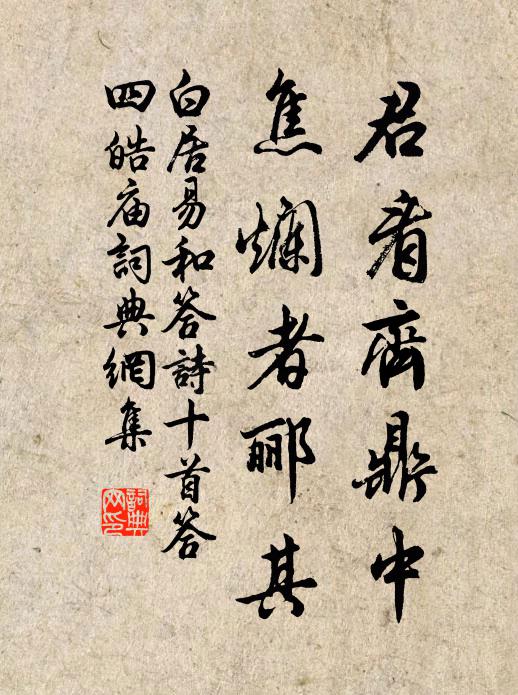 君看齊鼎中
焦爛者酈其
白居易和答詩十首答
四皓庙詞典網集
詞典
网印